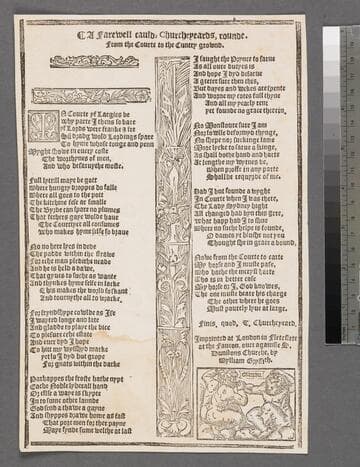 A Farewell cauld, Churcheyeards, rounde.
From the Courte to the Cuntry grownd.
IN Courte yf Largies be
why parte I thens so bare
yf Lords were franke &
Sū dradg wolld Lordings spare
To hyme whose tonge and penn
Myght showe in every coste
The worthynes of men,
And who deserveth moste.
Full steryll maye be gaet
Where hungry droppes do falle
Where all goes to the pot
The kitchene self is smalle
The Byrde can spare no plumes
That fethers gaye wolde have
The Courtyer all consumes
Who makes hym selfe so brave
No no here lyes in dede
The padde within the strawe
For eche man pleadeth neade
And he is held a dawe,
That gyves to suche as wante
And thynkes hyme selfe in lacke
This makes the worlde so skant
And tournythe all to wracke,
For fryndshyppe colde as Ise
I wayted longe and late
And gladde to playe the vice
to plesure eche estate
And ever dyd I hope
To hitt my wysshyd marke
yet so I dyd but grope
For gnats within the darke
Parhappes the froste hathe nypt
Eache Noble lyberall hand
Or elles a waye is slypte
In to some other lannde
God send a thawe agayne
And shyppes drawe home as fast
That pore men for ther payne
Maye fynde some welthe at last
I saught the Prynce to sarve
As all oure dutyes is
And hope I dyd deserve
A greter sute then this,
But dayes and wekes are spente
And worne my cotes full thyne
And all my peach rent
yet founde no grace therein,
No Monstowre sure I am
Nor so wile deformyd thynge,
No shepe nor suckinge lame
More lycke to sarve a kynge,
As shall bothe hand and harte
At lengthe my wytnes be,
when prosse in any parte
Shall be requyre of me.
Had I but founde a wyght
In Courte when I was there,
The Lady Sydney hight
All changed had byn this gere,
What happ had I to shun
Where no suche helpe is founde,
O dames ye blusshe not you
Thought she in grace abound,
Nowe from the Courte to carte
My horse and I muste passe,
Who hathe the meryst harte
Who is in better case
My horse or I, God knowes,
The one muste beare his charge
The other where he goes
Must powrely lyve at large.
Finis, quod, T, Churcheyeard.
Imprinted at London in Fletestrete
at the Faucon, over againste S,
Dunstons Churche, by
Wylliam Gryffyth.